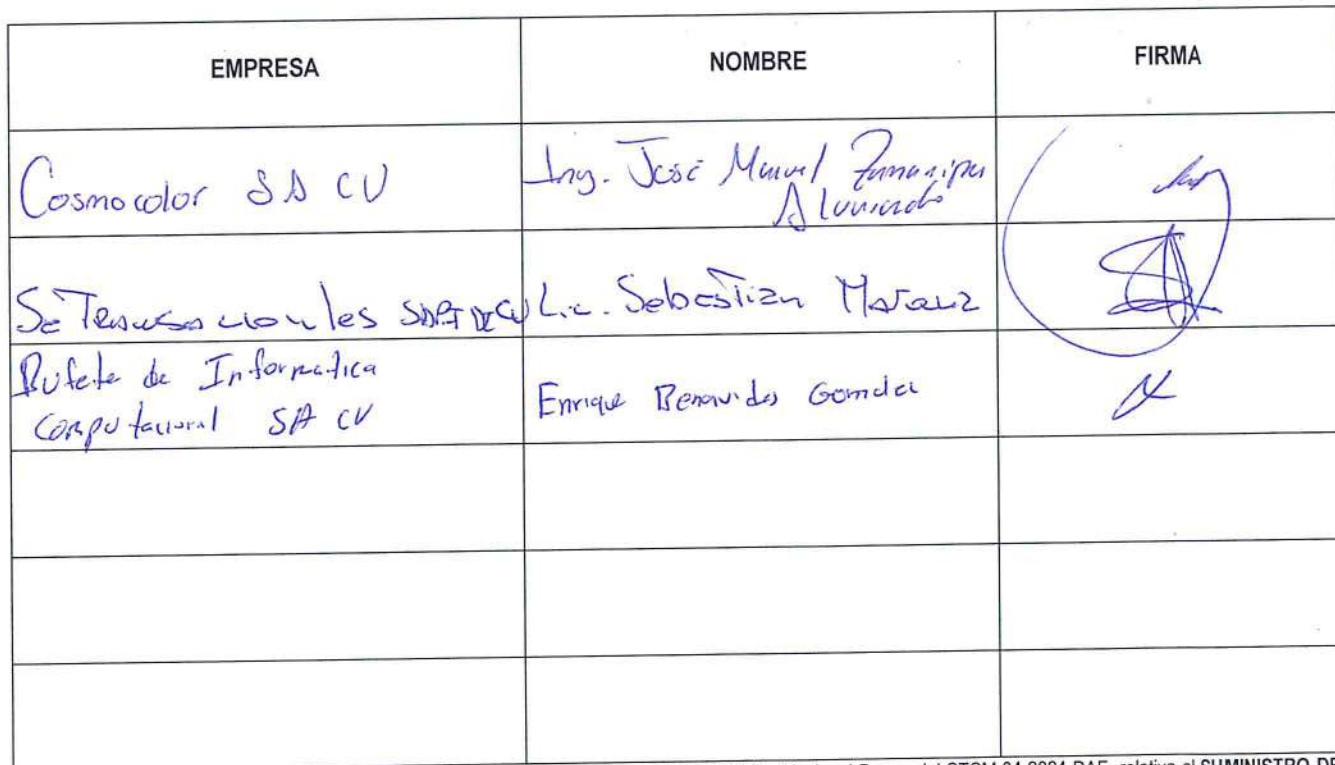 EMPRESA
NOMBRE
FIRMA
Cosmocolor SA CV
Ing. José Manuel
Alvarado
SAPI DE CV
Lic. Sebastian
Bufete de Informatica
Computacional SA CV
Enrique Benavides
STCM 04-2024 DAF, relativo al SUMINISTRO DE